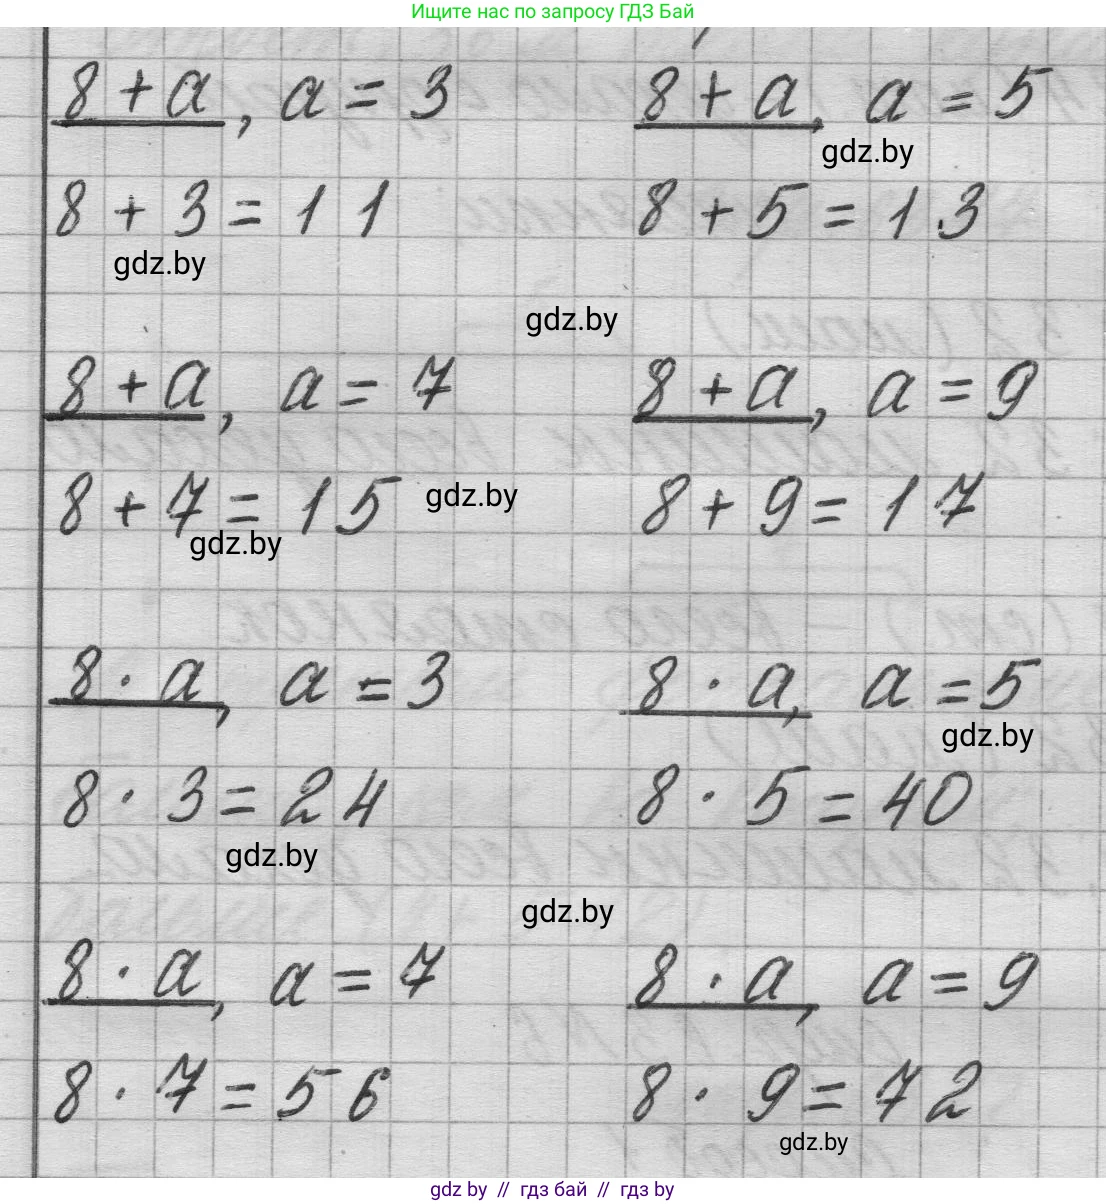 Ищите нас по запросу ГДЗ Бай
8 + a, a = 3
8 + a, a = 5
gdz.by
8 + 3 = 11
8 + 5 = 13
gdz.by
gdz.by
8 + a, a = 7
8 + a, a = 9
8 + 7 = 15
gdz.by
8 + 9 = 17
gdz.by
8 · a, a = 3
8 · a, a = 5
gdz.by
8 · 3 = 24
8 · 5 = 40
gdz.by
gdz.by
8 · a, a = 7
8 · a, a = 9
8 · 7 = 56
8 · 9 = 72
gdz.by
gdz by // гдз бай // гдз by